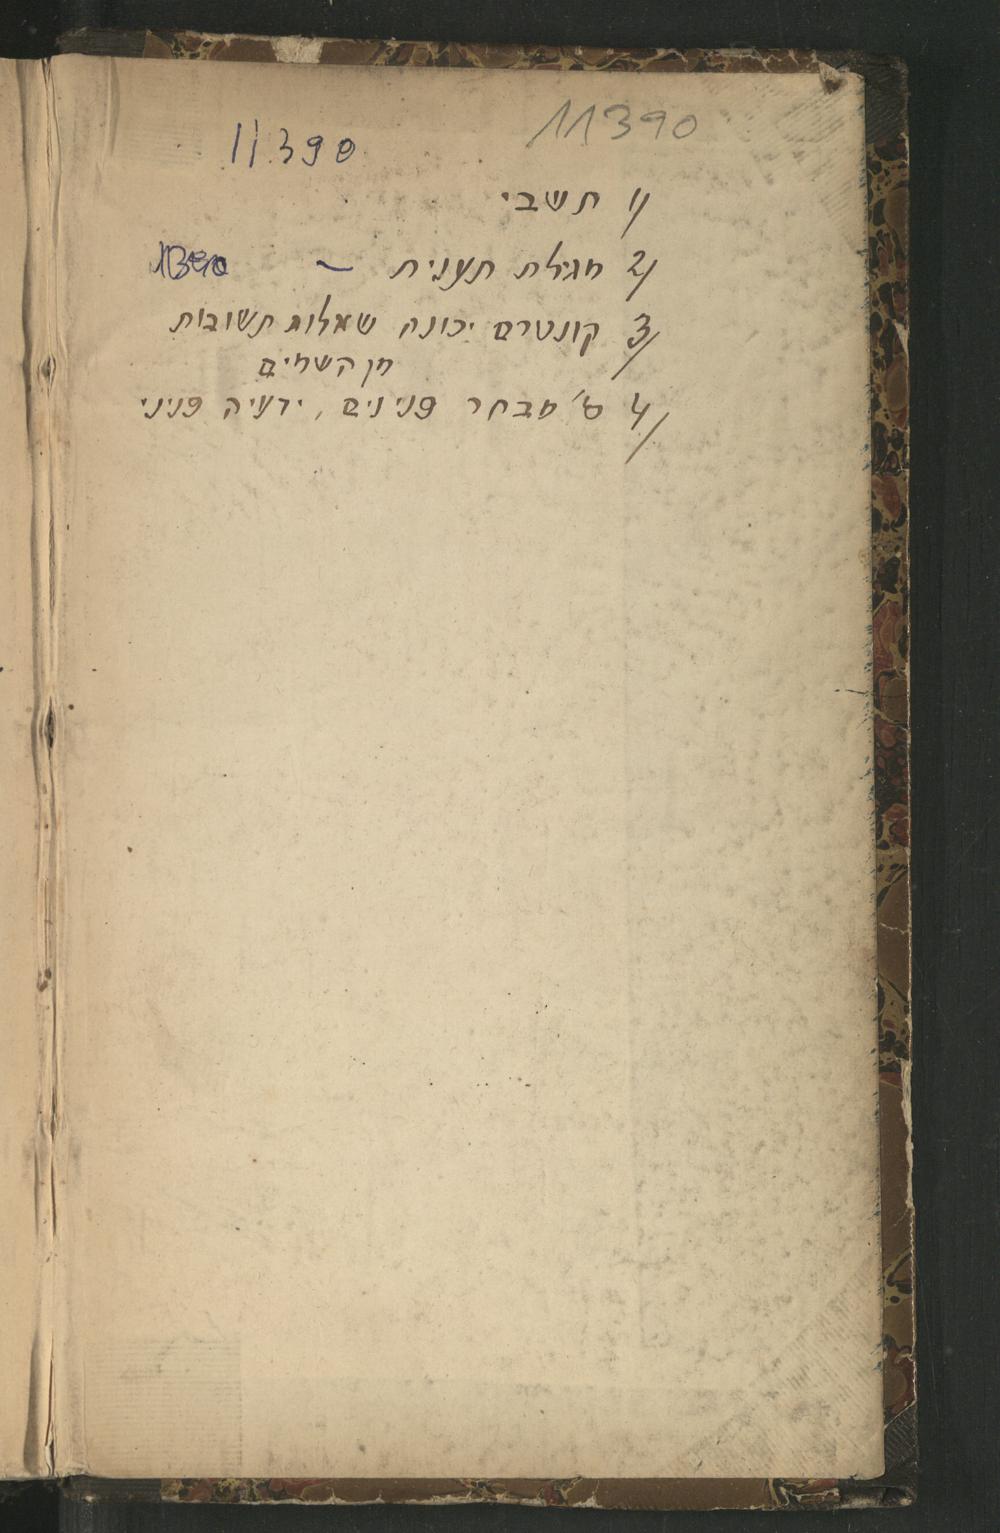 11390
11390
1/ תשבי
2/ מגילת תענית –
3/ קונטרס יכונה שאלות תשובות
מן השמים
4/ ס' מבחר פנינים, ידעיה פניני